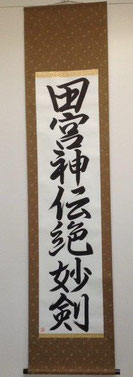 田宮神伝絶妙剣